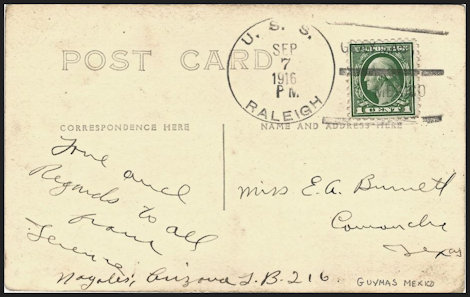 U. S. S.
SEP
7
1916
P M.
RALEIGH
POST CARD
U.S. POSTAGE
1 CENT 1
CORRESPONDENCE HERE
NAME AND ADDRESS HERE
Love and
Regards to all
from
Miss E. A. Burnett
Comanche
Texas
Nogales, Arizona L.B. 216.
GUYMAS MEXICO